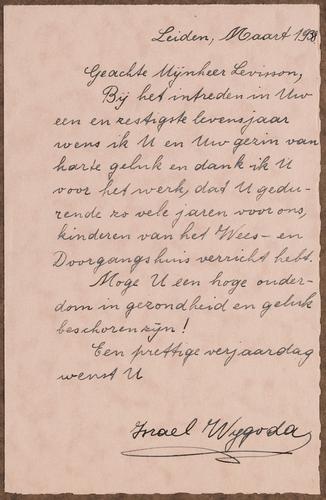 Leiden, Maart 1939
Geachte Mijnheer Levisson,
Bij het intreden in Uw
een en zestigste levensjaar
wens ik U en Uw gezin van
harte geluk en dank ik U
voor het werk, dat U gedu-
rende zo vele jaren voor ons,
kinderen van het Wees- en
Doorgangshuis verricht hebt.
Moge U een hoge ouder-
dom in gezondheid en geluk
beschoren zijn!
Een prettige verjaardag
wenst U
Israel Wygoda